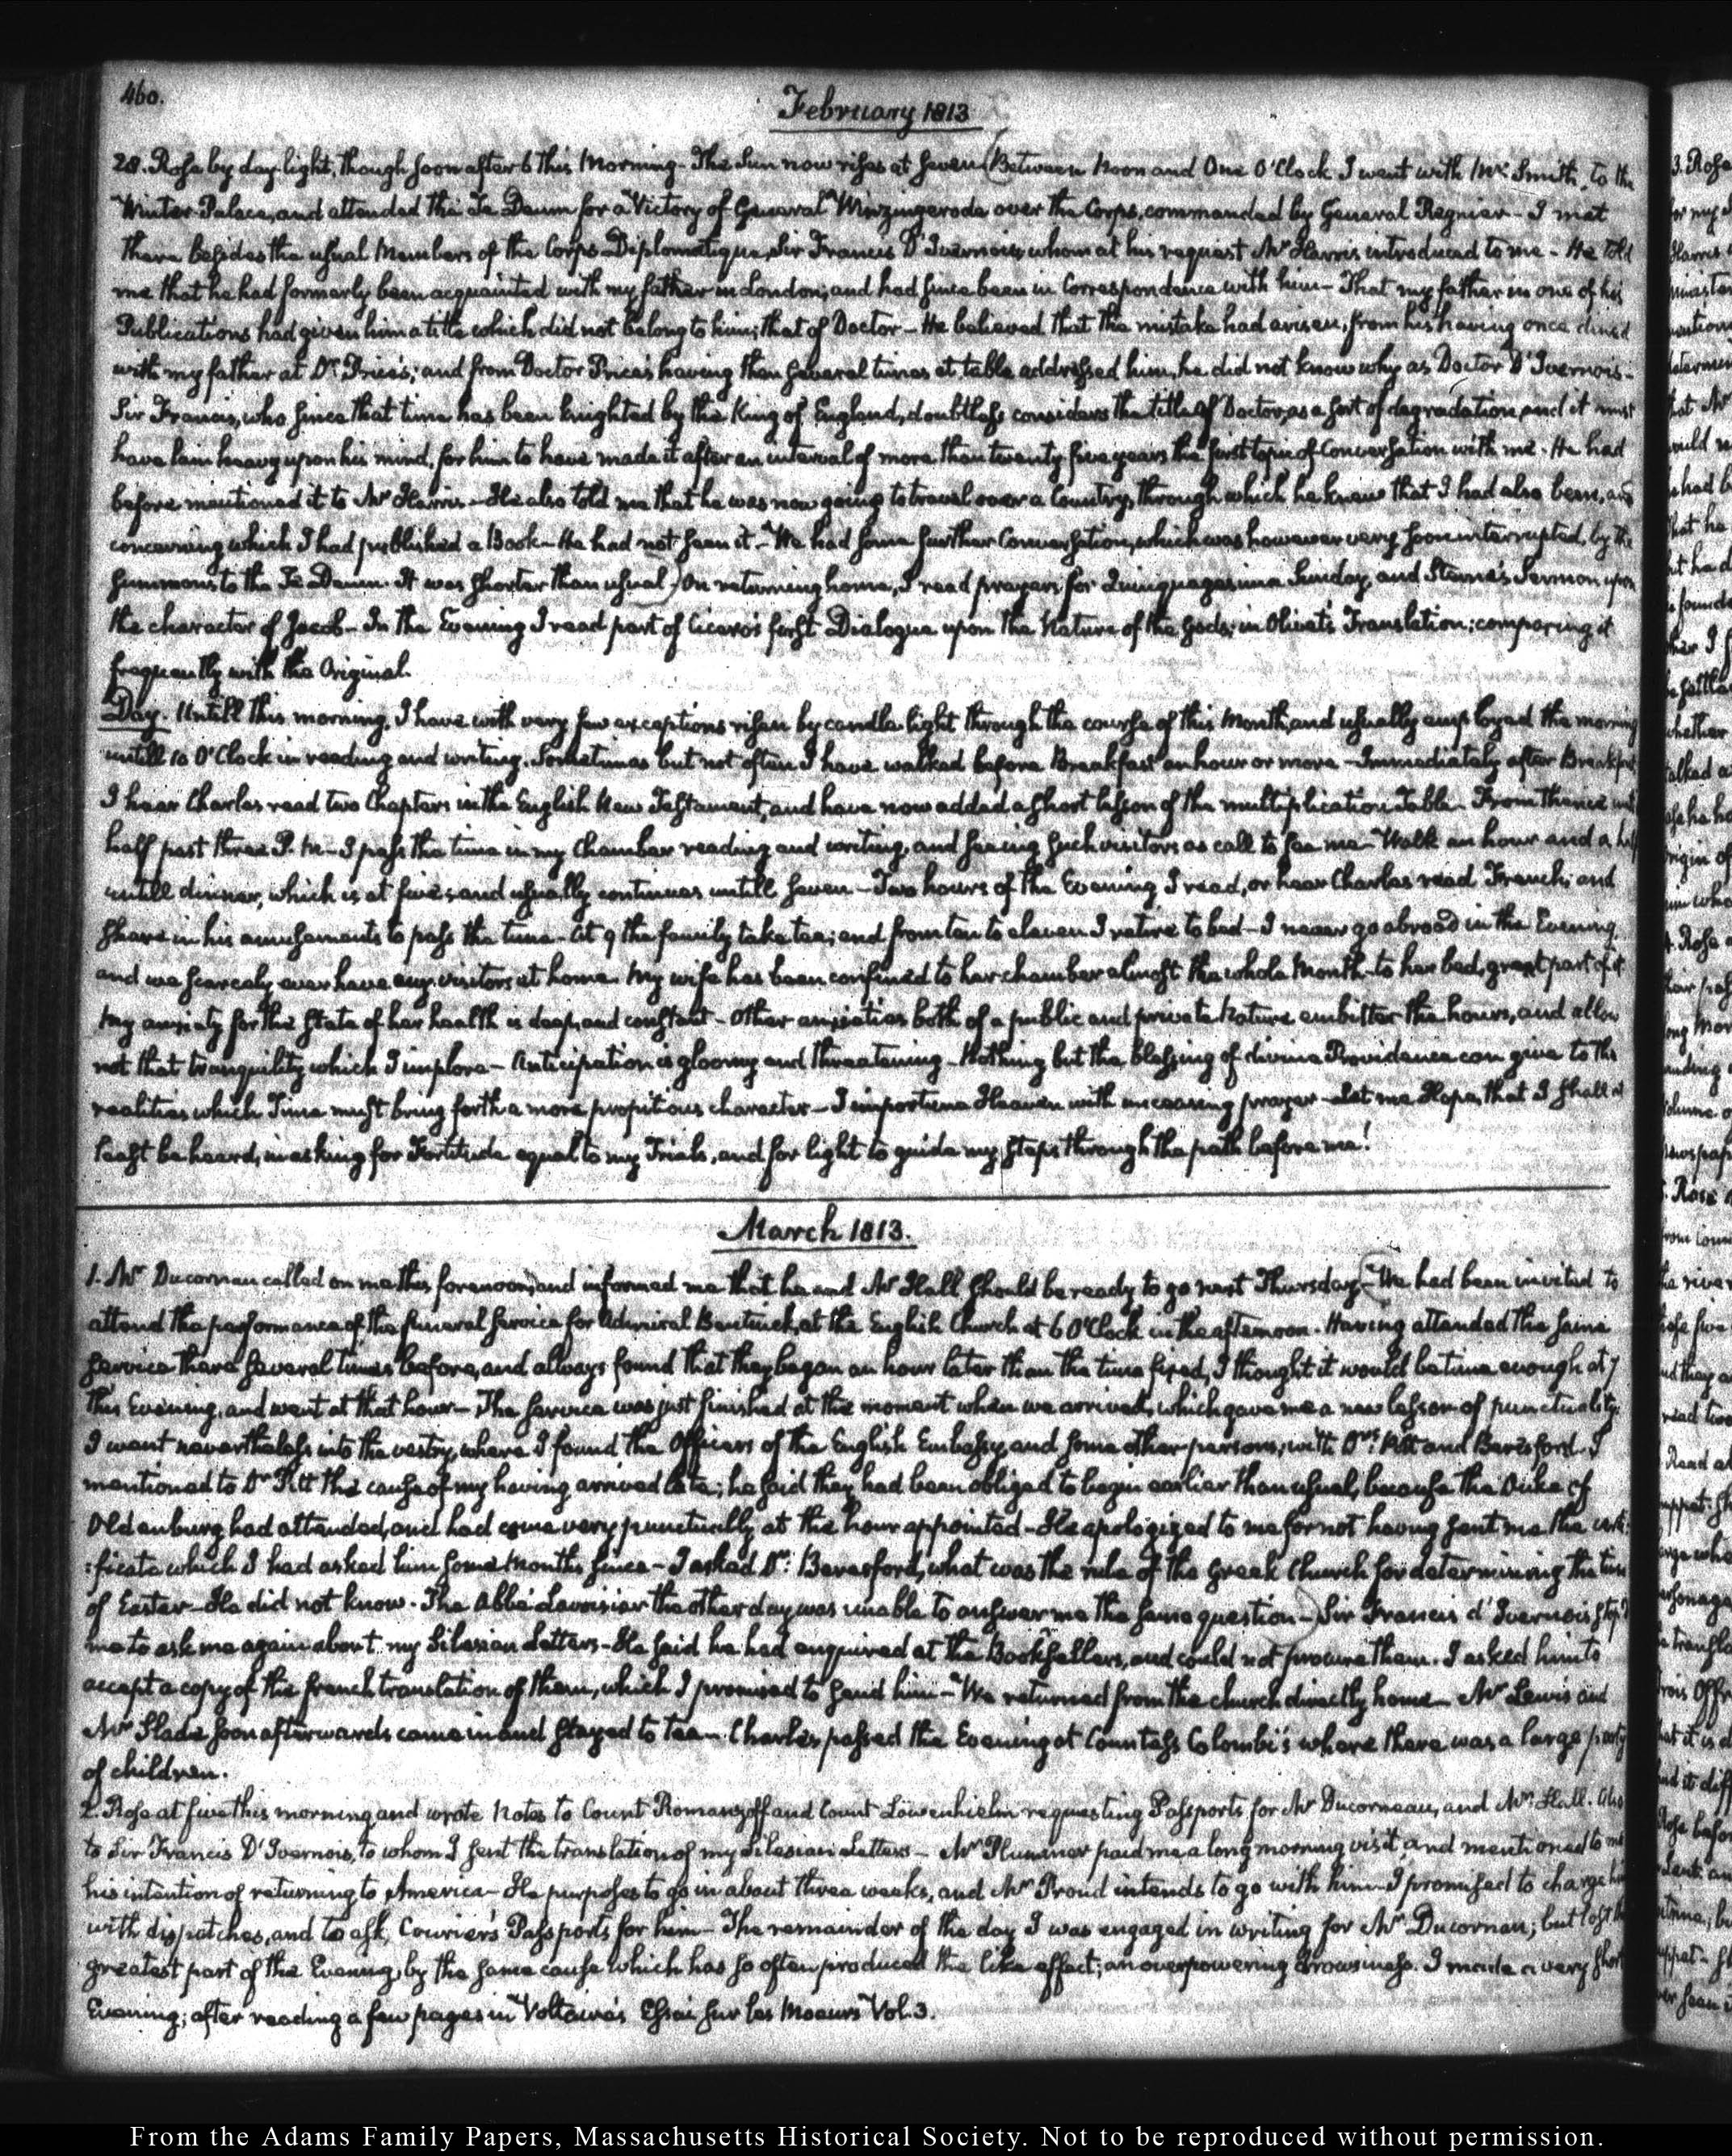 460.
February 1813
28. Rose by day-light, though soon after 6 this Morning. The Sun now rises at seven (Between Noon and One O'Clock I went with Mr. Smith, to the
Winter Palace, and attended the Te Deum for a Victory of General Winzingerode over the Corps, commanded by General Regnier - I met
there besides the usual Members of the Corps Diplomatique, Sir Francis D'Ivernois, whom at his request Mr Harris introduced to me - He told
me that he had formerly been acquainted with my father in London; and had since been in Correspondence with him - That my father in one of his
Publications had given him a title which did not belong to him; that of Doctor - He believed that the mistake had arisen, from his having once dined
with my father at Dr. Price's; and from Doctor Price's having then several times at table addressed him, he did not know why as Doctor D'Ivernois -
Sir Francis, who since that time has been knighted by the King of England, doubtless considers the title of Doctor, as a sort of degradation, and it must
have lain heavy upon his mind, for him to have made it after an interval of more than twenty five years the first topic of Conversation with me. He had
before mentioned it to Mr Harris - He also told me that he was now going to travel over a Country, through which he knew that I had also been, and
concerning which I had published a Book - He had not seen it - We had some further Conversation, which was however very soon interrupted, by the
summons to the Te Deum. It was shorter than usual.) On returning home, I read prayers for Quinquagesima Sunday, and Sterne's Sermon upon
the character of Jacob - In the Evening I read part of Cicero's first Dialogue upon the Nature of the Gods; in Olivet's Translation; comparing it
frequently with the Original.
Day. Untill this morning, I have with very few exceptions risen by candle-light through the course of this Month, and usually employed the morning
untill 10 O'Clock in reading and writing. Sometimes but not often I have walked before Breakfast an hour or more - Immediately after Breakfast
I hear Charles read two Chapters in the English New Testament, and have now added a short lesson of the multiplication Table - From thence until
half past three P.M - I pass the time in my Chamber reading and writing, and seeing such visitors as call to see me - Walk an hour and a half
untill dinner, which is at five; and usually continues untill seven - Two hours of the Evening I read, or hear Charles read French; and
share in his amusements to pass the time - At 9 the family take tea; and from ten to eleven I retire to bed - I never go abroad in the Evening,
and we scarcely ever have any visitors at home. My wife has been confined to her chamber almost the whole Month - to her bed, great part of it
My anxiety for the state of her health is deep, and constant - Other anxieties both of a public and private Nature embitter the hours, and allow
not that tranquility which I implore - Anticipation is gloomy and threatening - Nothing but the blessing of divine Providence can give to the
realities which Time must bring forth a more propitious character - I importune Heaven with unceasing prayer - Let me Hope, that I shall at
least be heard, in asking for Fortitude equal to my Trials, and for light to guide my steps through the path before me!
March 1813.
1. Mr Ducornau called on me this forenoon, and informed me that he and Mr Hall, should be ready to go next Thursday (We had been invited to
attend the performance of the funeral service for Admiral Bentinck, at the English Church at 6 O'Clock in the afternoon. Having attended the same
service there several times before, and always found that they began an hour later than the time fixed, I thought it would be time enough at 7
this Evening, and went at that hour - The service was just finished at the moment when we arrived, which gave me a new lesson of punctuality.
I went nevertheless into the vestry, where I found the Officers of the English Embassy and some other persons, with Drs. Pitt and Beresford. I
mentioned to Dr Pitt the cause of my having arrived late; he said they had been obliged to begin earlier than usual, because the Duke of
Oldenburg had attended, and had come very punctually at the hour appointed - He apologized to me for not having sent me the certi-
:ficate which I had asked him some Months since - I asked Dr: Beresford, what was the rule of the Greek Church for determining the time
of Easter - He did not know. The Abbé Lavoisier the other day was unable to answer me the same question -) Sir Francis d'Ivernois stop'd
me to ask me again about my Silesian Letters - He said he had enquired at the Booksellers, and could not procure them. I asked him to
accept a copy of the french translation of them, which I promised to send him - We returned from the church directly home - Mr Lewis and
Mr Slade soon afterwards came in and stayed to tea - Charles passed the Evening at Countess Colombi's where there was a large party
of children.
2. Rose at five this morning, and wrote Notes to Count Romanzoff and Count Löwenhielm requesting Passports for Mr Ducorneau, and Mr. Hall. Also
to Sir Francis D'Ivernois, to whom I sent the translation of my Silesian Letters - Mr Plummer paid me a long morning visit and mentioned to me
his intention of returning to America - He purposes to go in about three weeks, and Mr Proud intends to go with him - I promised to charge him
with dispatches, and to ask, Courier's Passports for him - The remainder of the day I was engaged in writing for Mr Ducornau; but lost the
greatest part of the Evening, by the same cause which has so often produced the like effect; an overpowering drowsiness. I made a very short
Evening; after reading a few pages in Voltaire's Essai sur les Moeurs Vol. 3.
From the Adams Family Papers, Massachusetts Historical Society. Not to be reproduced without permission.